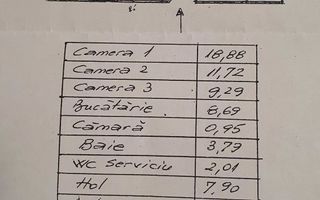 Camera 1 18,88
Camera 2 11,72
Camera 3 9,29
Bucătărie 8,69
Cămară 0,95
Baie 3,79
WC Serviciu 2,01
Hol 7,90